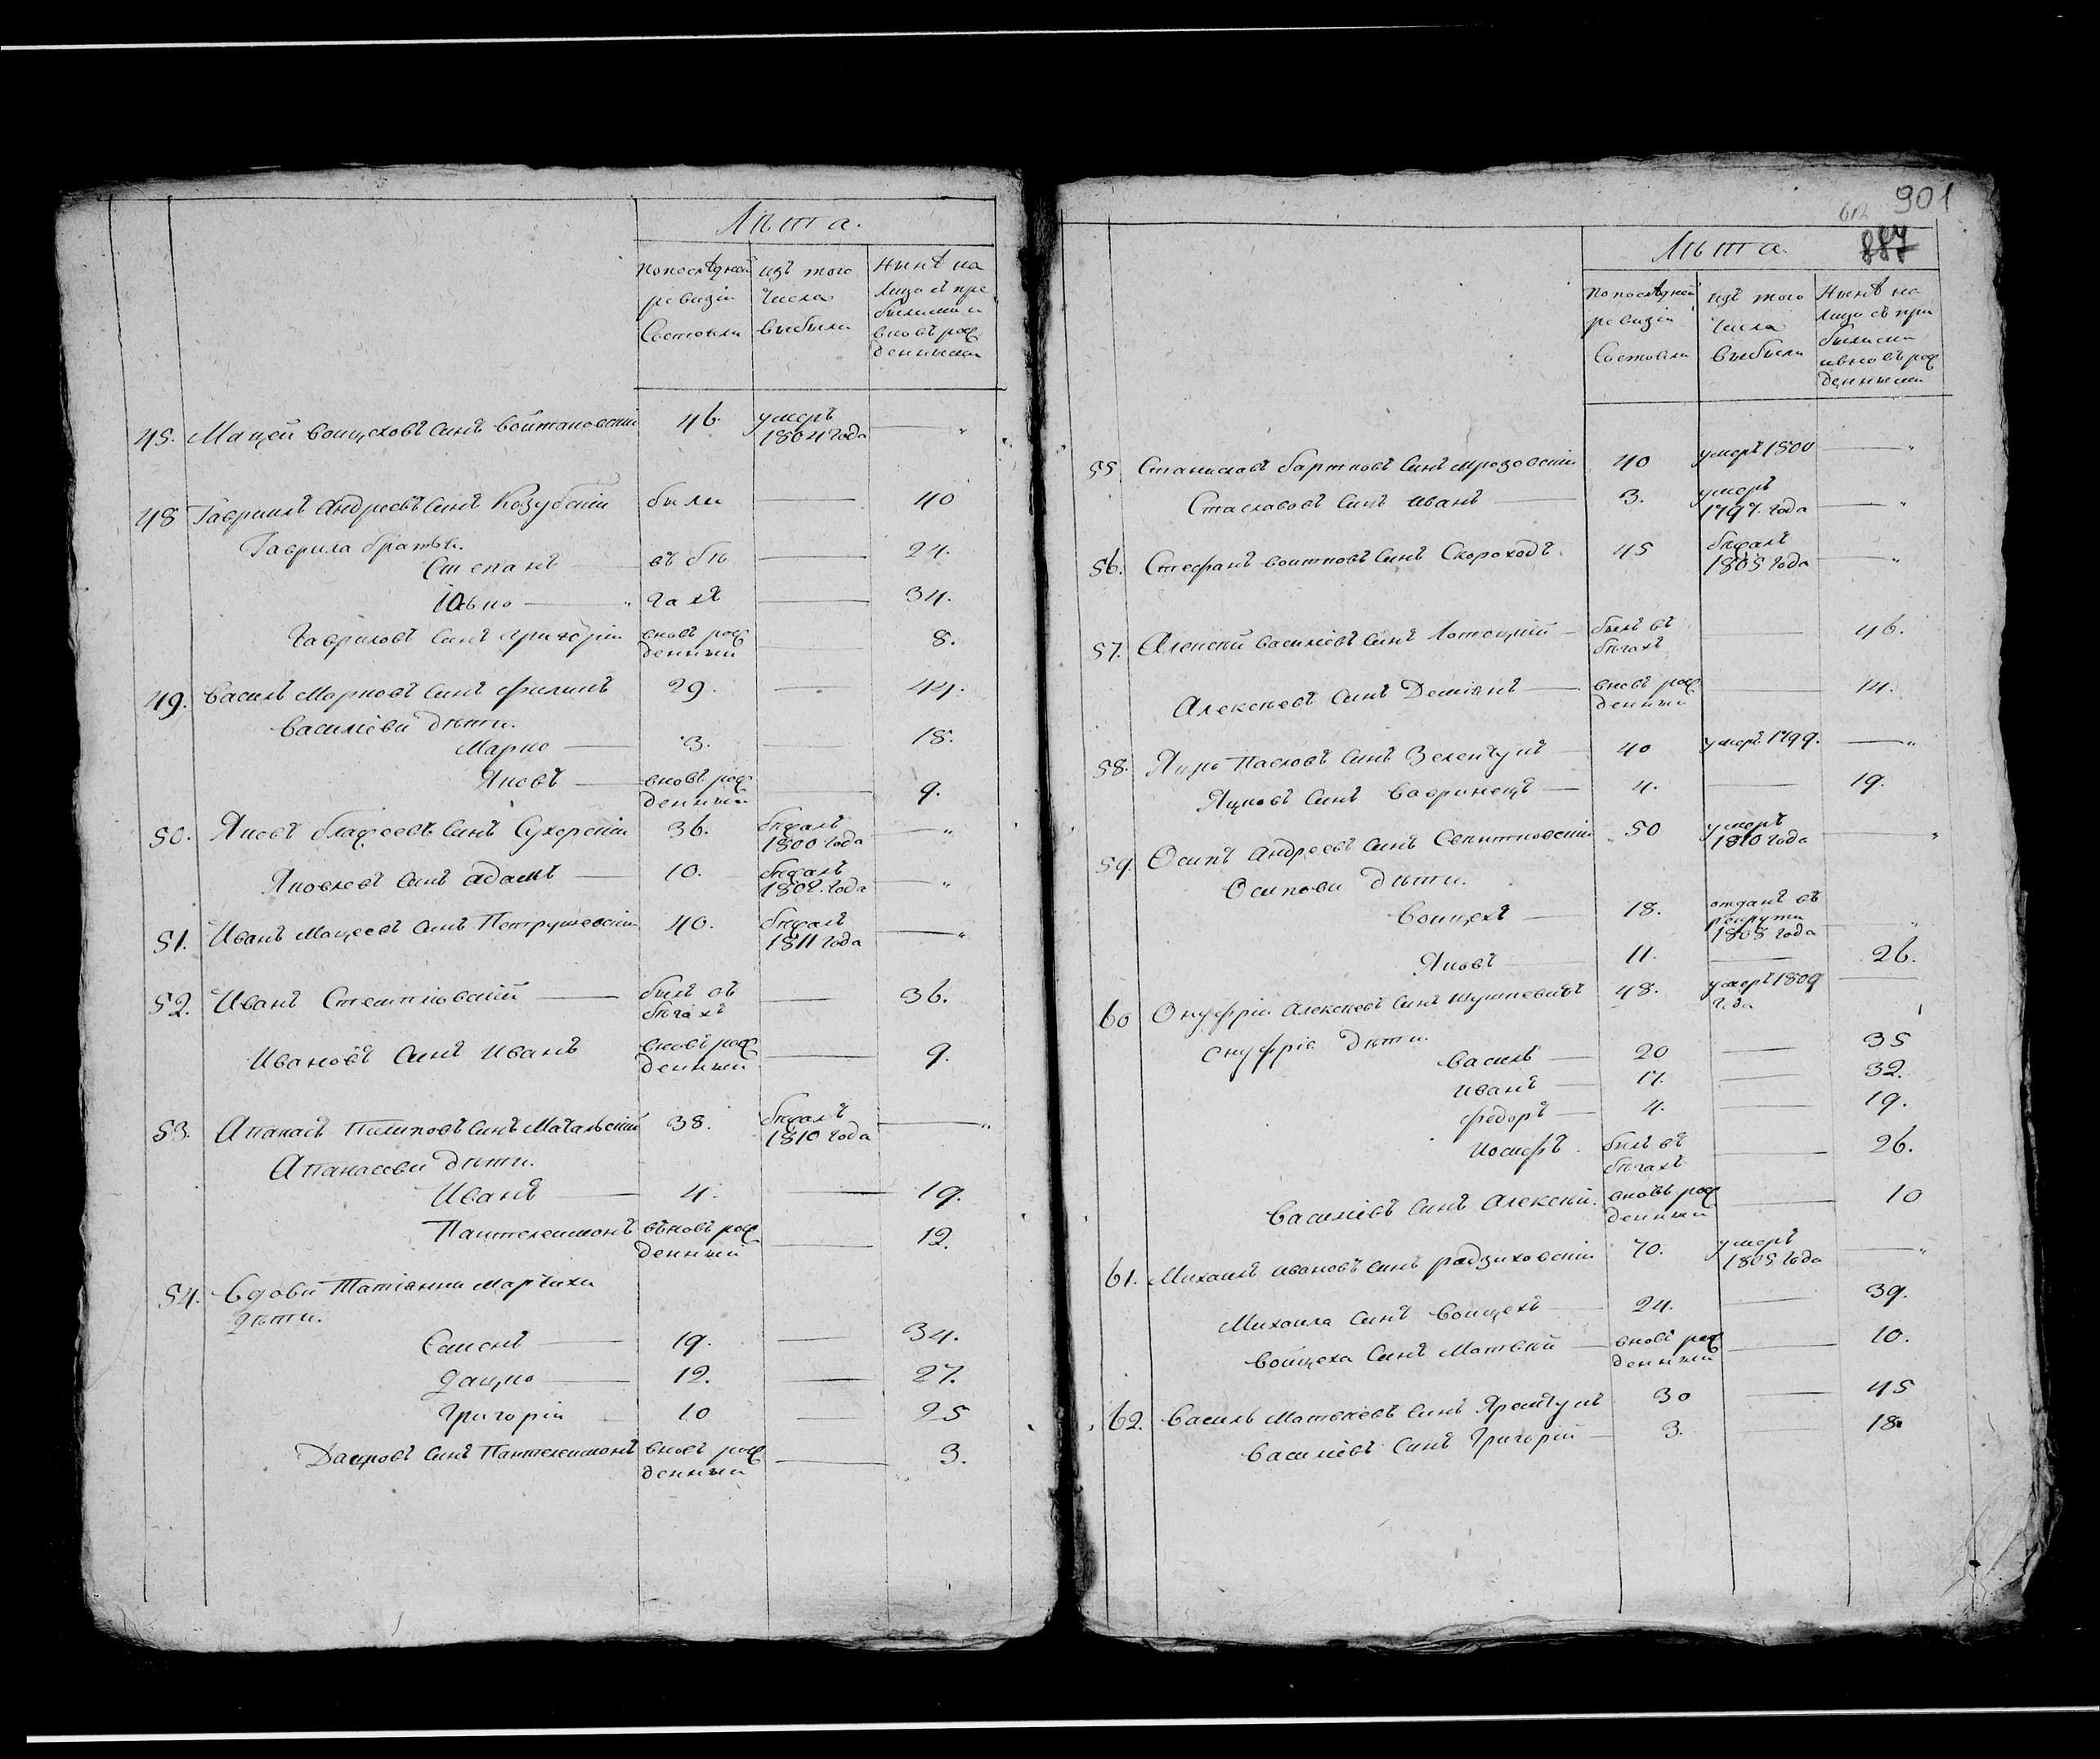 Лѣта.
Попослѣдней ревизіи Состояли
изъ того Числа выбыли
Нынѣ на Лицо съ прибылыми и вновь рожденными
45. Мацей войцеховъ синъ войтановскій 46. умеръ 1804 года — "
48 Гаврилъ Андреевъ Синъ Козубскій были — 40
Гаврила братья.
Степанъ въ бѣ — 24.
Юзько — " гахъ — 34.
Гавриловъ синъ григорій вновь рожденный — 8.
49. Василь Марковъ Синъ филикъ 29. — 44.
василіеви дѣти.
Марко — 3. — 18.
Яковъ — вновь рожденный — 9.
50. Яковъ блажеевъ Синъ Сухорскій 36. бѣжалъ 1800 года — "
Яковлевъ Синъ адамъ — 10. бѣжалъ 1802. года — "
51. Иванъ Мацеевъ Синъ Петрушевскій 40. бѣжалъ 1811 года — "
52. Иванъ Стемпковскій — былъ въ бѣгахъ — 36.
Ивановъ Синъ Иванъ вновь рожденный — 9.
53. Апанасъ Пилиповъ Синъ Мачальскій 38. бѣжалъ 1810 года — "
Апанасови дѣти.
Иванъ — 4. — 19.
Пантелеимонъ вѣновь рожденный — 12.
54. Вдови Татіанни марчихи
дѣти.
Семенъ — 19. — 34.
Дацко — 12. — 27.
Григорій — 10 — 25
Дацковъ Синъ Пантелеимонъ вновь рожденный — 3.
901
887
Лѣта.
Попослѣдней ревизіи Состояли
изъ того Числа Выбыли
Нынѣ на Лицо съ прибылыми ивновь рожденными
55. Станиславъ бартковъ Синъ мрозовскій 40 умеръ 1800 — "
Стаславовъ Синъ иванъ — 3. умеръ 1797. года — "
56. Стефанъ воитковъ Синъ Скороходъ. 45 бѣжалъ 1805 года — "
57. Алексѣй василіевъ Синъ Лотоцкій — былъ въ бѣгахъ — 46.
Алексѣевъ Синъ Деміянъ — вновь рожденный — 14.
58. Яцко Павловъ Синъ Зеленчукъ — 40 умеръ 1799. — "
Яцковъ Синъ вавринецъ — 4. — 19.
59. Осипъ андреевъ Синъ Свитковскій 50 умеръ 1810 года — "
Осипови дѣти.
Войцехъ — 18. отданъ въ рекруты 1808 года — "
Яковъ — 11. — 26.
60 Онуфрій алексѣевъ Синъ шушкевичъ 48. умеръ 1809 года —
Онуфрія дѣти.
василь — 20 — 35
иванъ — 17. — 32.
федоръ — 4. — 19.
иосифъ. былъ въ бѣгахъ — 26.
василіевъ синъ алексѣй. вновь рожденный — 10
61. Михаилъ ивановъ синъ радзиховскій 70. умеръ 1805 года — "
Михаила Синъ войцехъ — 24. — 39.
войцеха Синъ Матвѣй — вновь рожденный — 10.
62. василь Матвѣевъ Синъ Яремчукъ 30 — 45
василіевъ Синъ Григорій — 3. — 18.